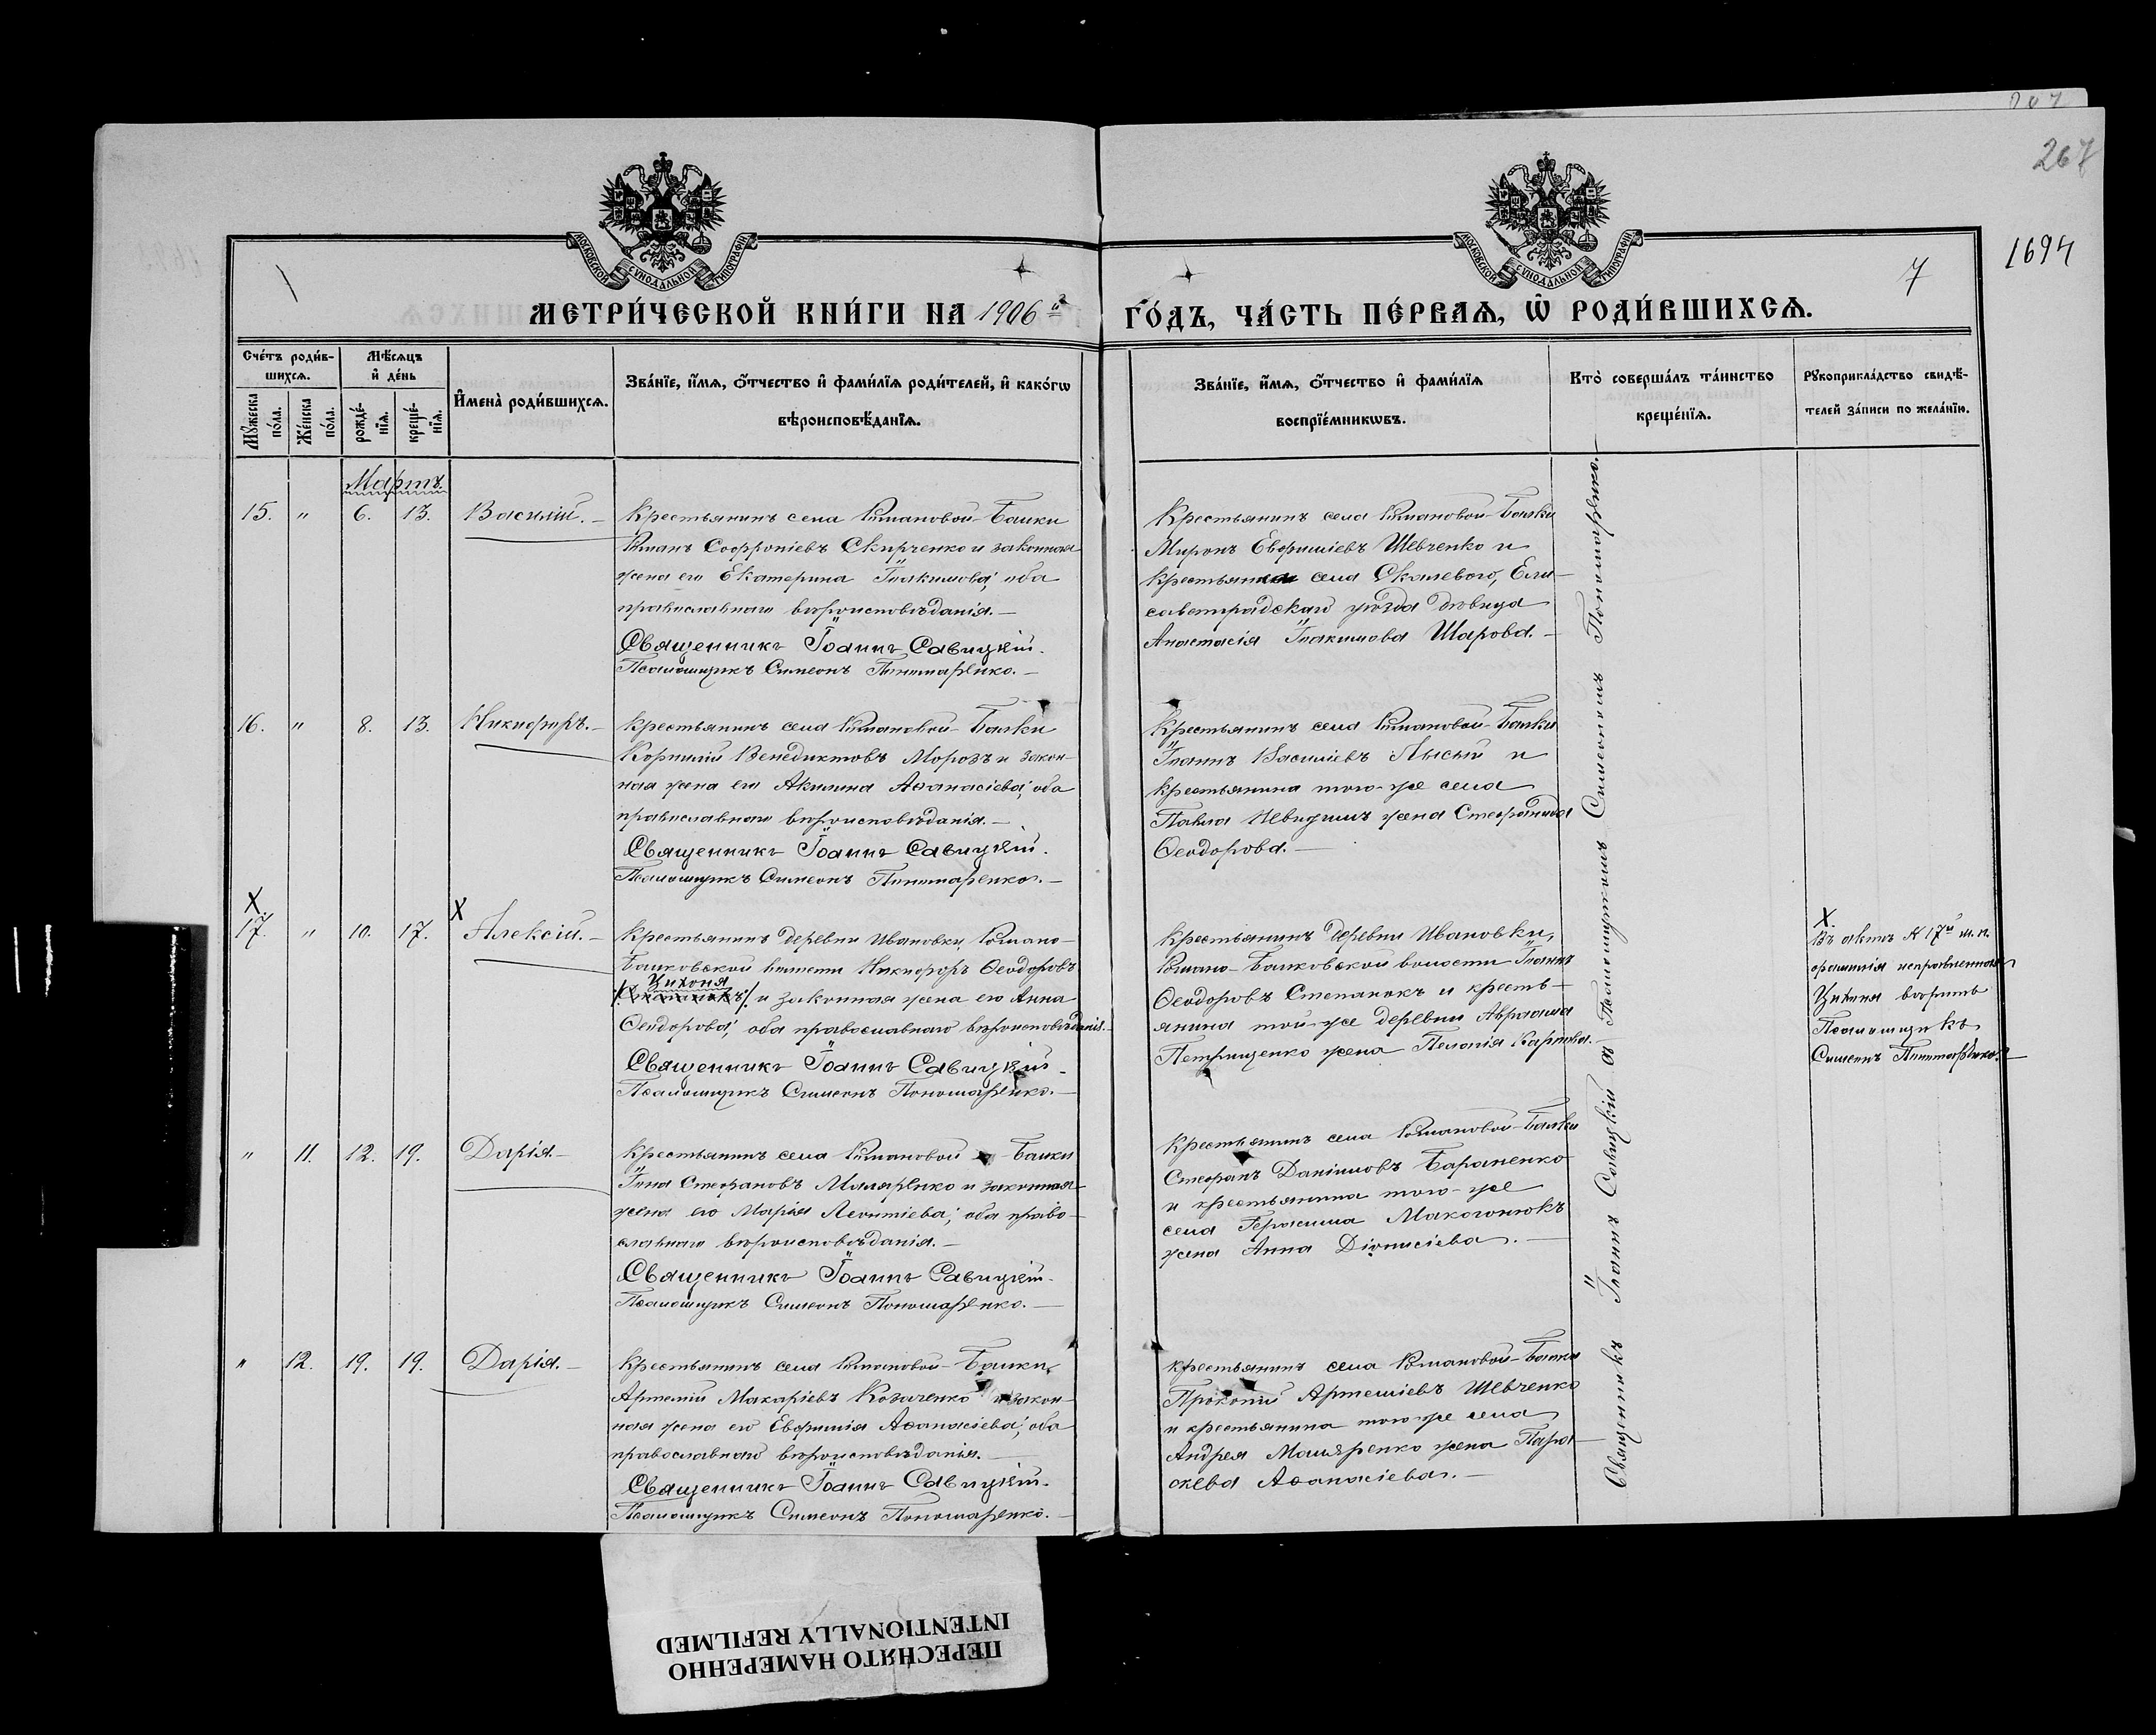 267
1694
7
МОСКОВСКОЙ СѴНОДАЛЬНОЙ ТИПОГРАФІИ
МОСКОВСКОЙ СѴНОДАЛЬНОЙ ТИПОГРАФІИ
МЕТРИ́ЧЕСКОЙ КНИ́ГИ НА 1906й
ГО́ДЪ, ЧА́СТЬ ПЕ́РВАѦ, Ѡ҆ РОДИ́ВШИХСѦ.
Сче́тъ роди́в-
шихсѧ.
Мꙋ́жеска по́ла.
Же́нска по́ла.
Мѣ́сѧцъ
и҆ де́нь
рожде́-
нїѧ.
креще́-
нїѧ.
И҆мена̀ роди́вшихсѧ.
Зва́нїе, и҆́мѧ, ѻ҆́тчество и҆ фами́лїѧ роди́телей, и҆ како́гѡ
вѣроисповѣ́данїѧ.
Зва́нїе, и҆́мѧ, ѻ҆́тчество и҆ фами́лїѧ
воспрїе́мникѡвъ.
Кто̀ соверша́лъ та́инство
креще́нїѧ.
Рꙋкоприкла́дство свидѣ́-
телей за́писи по жела́нїю.
Мартъ.
15. " 6. 13. Василій.—
Крестьянинъ села Романовой-Балки
Романъ Софроніевъ Скирченко и законная
жена его Екатерина Іоакимова; оба
православнаго вѣроисповѣданія.—
Священникъ Іоаннъ Савицкій.
Псаломщикъ Симеонъ Пономаренко.—
Крестьянинъ села Романовой-Балки
Миронъ Евфиміевъ Шевченко и
крестьянка села Скалевого, Ели-
саветградскаго уѣзда дѣвица
Анастасія Іоакимова Шарова.—
16. " 8. 13. Никифоръ.—
Крестьянинъ села Романовой-Балки
Корнилій Венедиктовъ Морозъ и закон-
ная жена его Акилина Аѳанасіева; оба
православнаго вѣроисповѣданія.—
Священникъ Іоаннъ Савицкій.
Псаломщикъ Симеонъ Пономаренко.—
Крестьянинъ села Романовой-Балки
Іоаннъ Василіевъ Лысый и
крестьянина того-же села
Павла жена Стефанида
Ѳеодорова.—
X X
17. " 10. 17. Алексій.—
Крестьянинъ деревни Ивановки, Романо-
Балковской волости Никифоръ Ѳеодоровъ
Цихоня
и законная жена его Анна
Ѳеодорова; оба православнаго вѣроисповѣданія.—
Священникъ Іоаннъ Савицкій.
Псаломщикъ Симеонъ Пономаренко.—
Крестьянинъ деревни Ивановки,
Романо-Балковской волости Іоаннъ
Ѳеодоровъ Степанюкъ и кресть-
янина той-же деревни Авраама
Петрищенко жена Пелагія Карпова.—
X.
Въ актѣ N 17й м. п.
фамилія исправленная
Цихоня вѣрить
Псаломщикъ
Симеонъ Пономаренко.—
" 11. 12. 19. Дарія.—
Крестьянинъ села Романовой Балки
Іона Стефановъ Маляренко и законная
жена его Марія Леонтіева; оба право-
славнаго вѣроисповѣданія.—
Священникъ Іоаннъ Савицкій.
Псаломщикъ Симеонъ Пономаренко.—
Крестьянинъ села Романовой-Балки
Стефанъ Даніиловъ Бараненко
и крестьянина того-же
села Герасима Макогонюкъ
жена Анна Діонисіева.—
" 12. 19. 19. Дарія.—
Крестьянинъ села Романовой-Балки,
Артемій Макаріевъ Козаченко и закон-
ная жена его Евфимія Аѳанасіева; оба
православнаго вѣроисповѣданія.—
Священникъ Іоаннъ Савицкій.
Псаломщикъ Симеонъ Пономаренко.—
Крестьянинъ села Романовой-Балки
Прокопій Артеміевъ Шевченко
и крестьянина того-же села
Андрея Маляренко жена Пара-
скева Аѳанасіева.—
Священникъ Іоаннъ Савицкій съ Псаломщикомъ Симеономъ Пономаренко.
ПЕРЕСНЯТО НАМЕРЕННО
INTENTIONALLY REFILMED